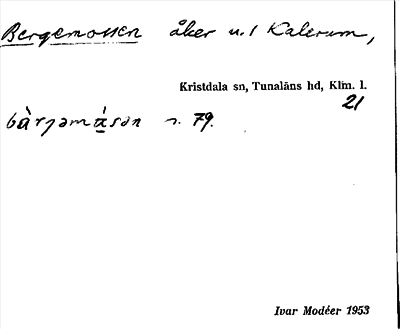 Bergemossen åker u. 1 Kalerum,
Kristdala sn, Tunaläns hd, Klm. l.
21
bàrjəmɑ́sən n. 79.
Ivar Modéer 1953